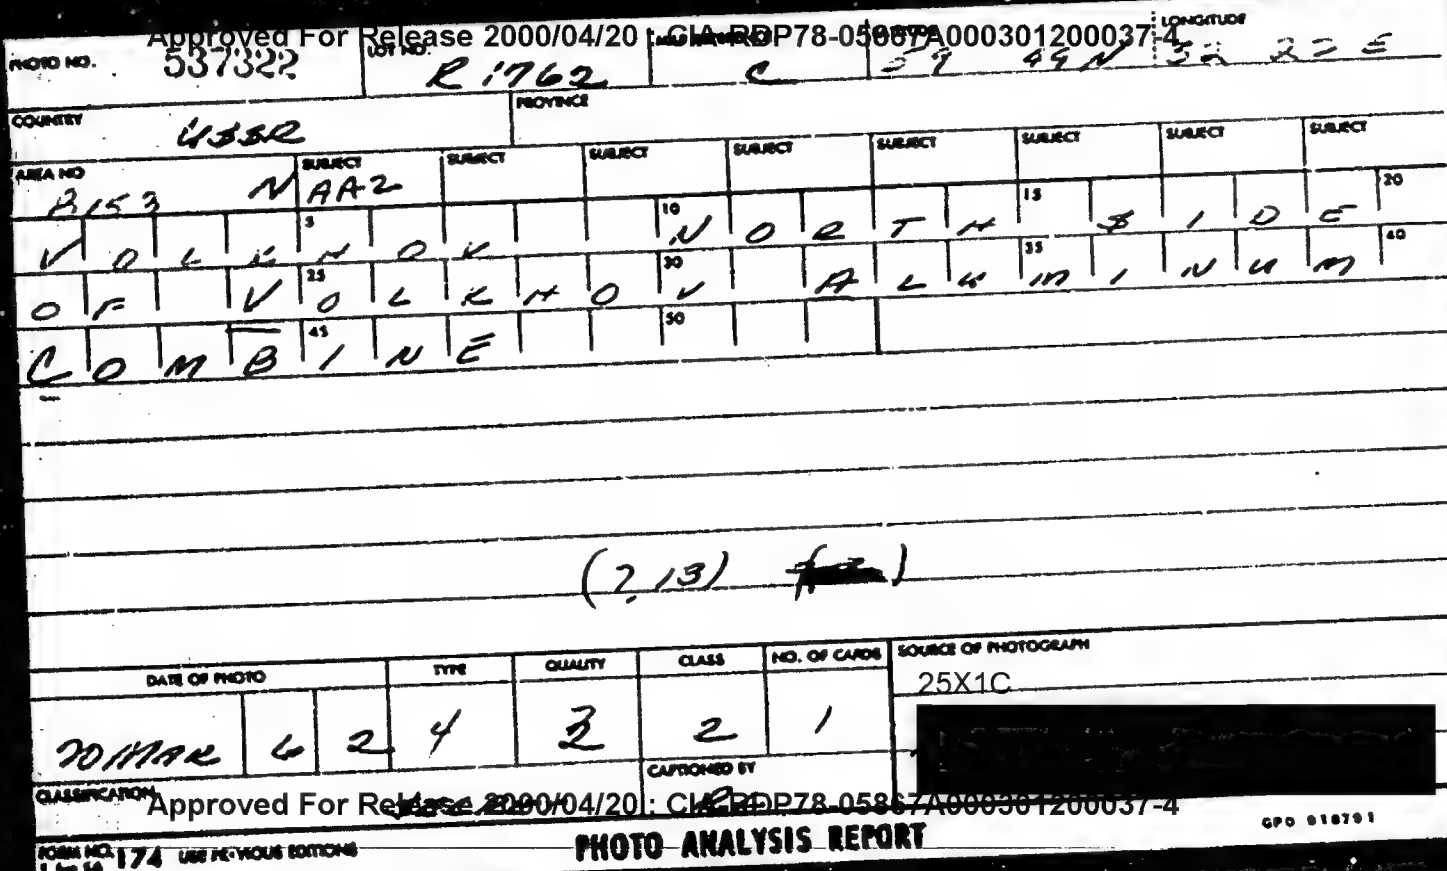 Approved For Release 2000/04/20 : CIA-RDP78-05867A000301200037-4
PHOTO NO. 537322 LOT NO. R 1762 C 59 44 N LONGITUDE 32 22 E
COUNTRY USSR PROVINCE
AREA NO B153 N SUBJECT AA2 SUBJECT SUBJECT SUBJECT SUBJECT SUBJECT SUBJECT SUBJECT
VOLKHOV NORTH SIDE 5 10 15 20
OF VOLKHOV ALUMINUM 25 30 35 40
COMBINE 45 50
(?, 13)
DATE OF PHOTO TYPE QUALITY CLASS NO. OF CARDS SOURCE OF PHOTOGRAPH
25X1C
20 MAR 6 2 4 2 1
CLASSIFICATION CAPTIONED BY
Approved For Release 2000/04/20 : CIA-RDP78-05867A000301200037-4
GPO 918791
FORM NO. 174 USE PREVIOUS EDITIONS PHOTO ANALYSIS REPORT